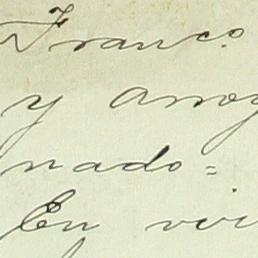 Franco.
y Arroy
nado=
En vir